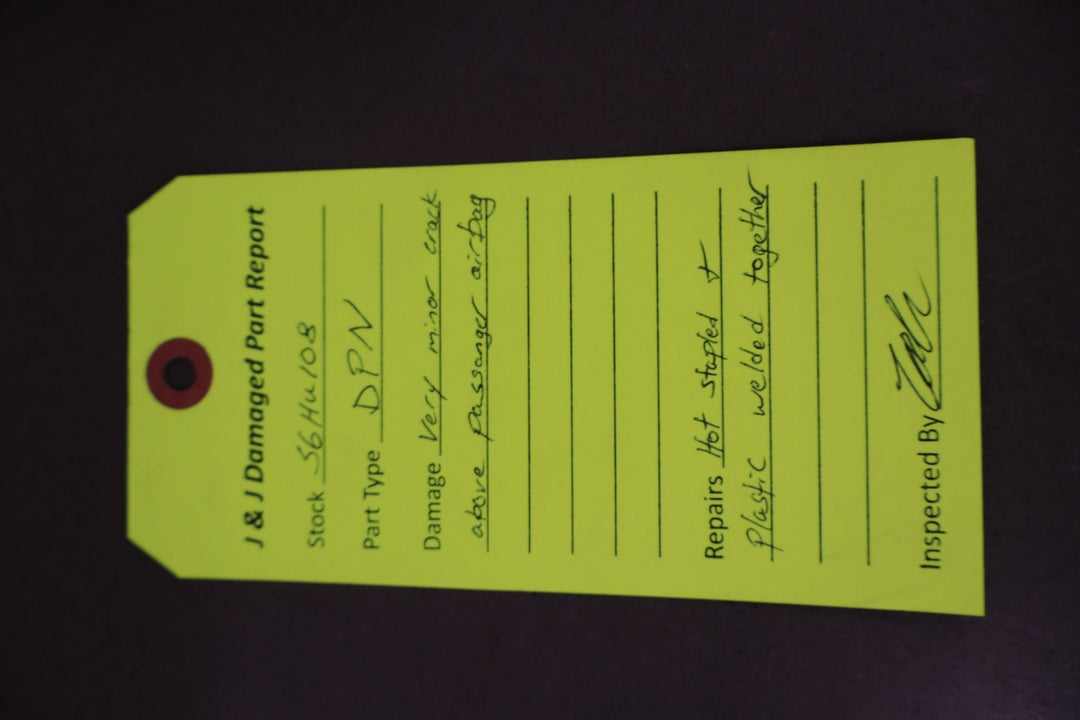 J & J Damaged Part Report
Stock S6Hu108
Part Type DPN
Damage Very minor crack
above passanger airbag
Repairs Hot stapled &
plastic welded together
Inspected By Zach